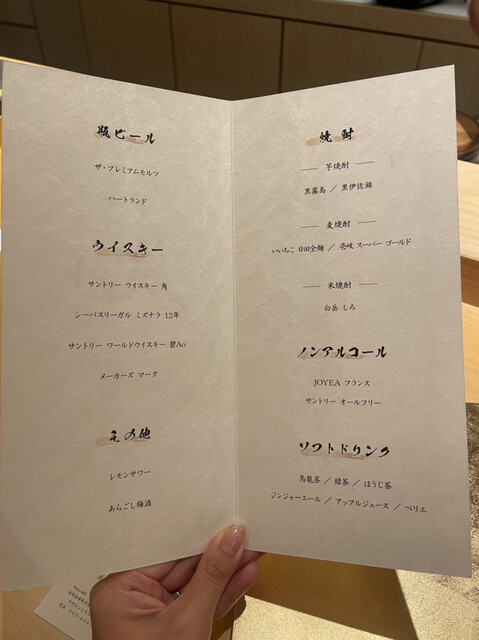 瓶ビール
ザ・プレミアムモルツ
ハートランド
ウイスキー
サントリー ウイスキー 角
シーバスリーガル ミズナラ 12年
サントリー ワールドウイスキー 碧Ao
メーカーズ マーク
その他
レモンサワー
あらごし梅酒
焼酎
芋焼酎
黒霧島 ／ 黒伊佐錦
麦焼酎
いいちこ 日田全麹 ／ 壱岐 スーパー ゴールド
米焼酎
白岳 しろ
ノンアルコール
JOYEA フランス
サントリー オールフリー
ソフトドリンク
烏龍茶 ／ 緑茶 ／ ほうじ茶
ジンジャーエール ／ アップルジュース ／ ペリエ